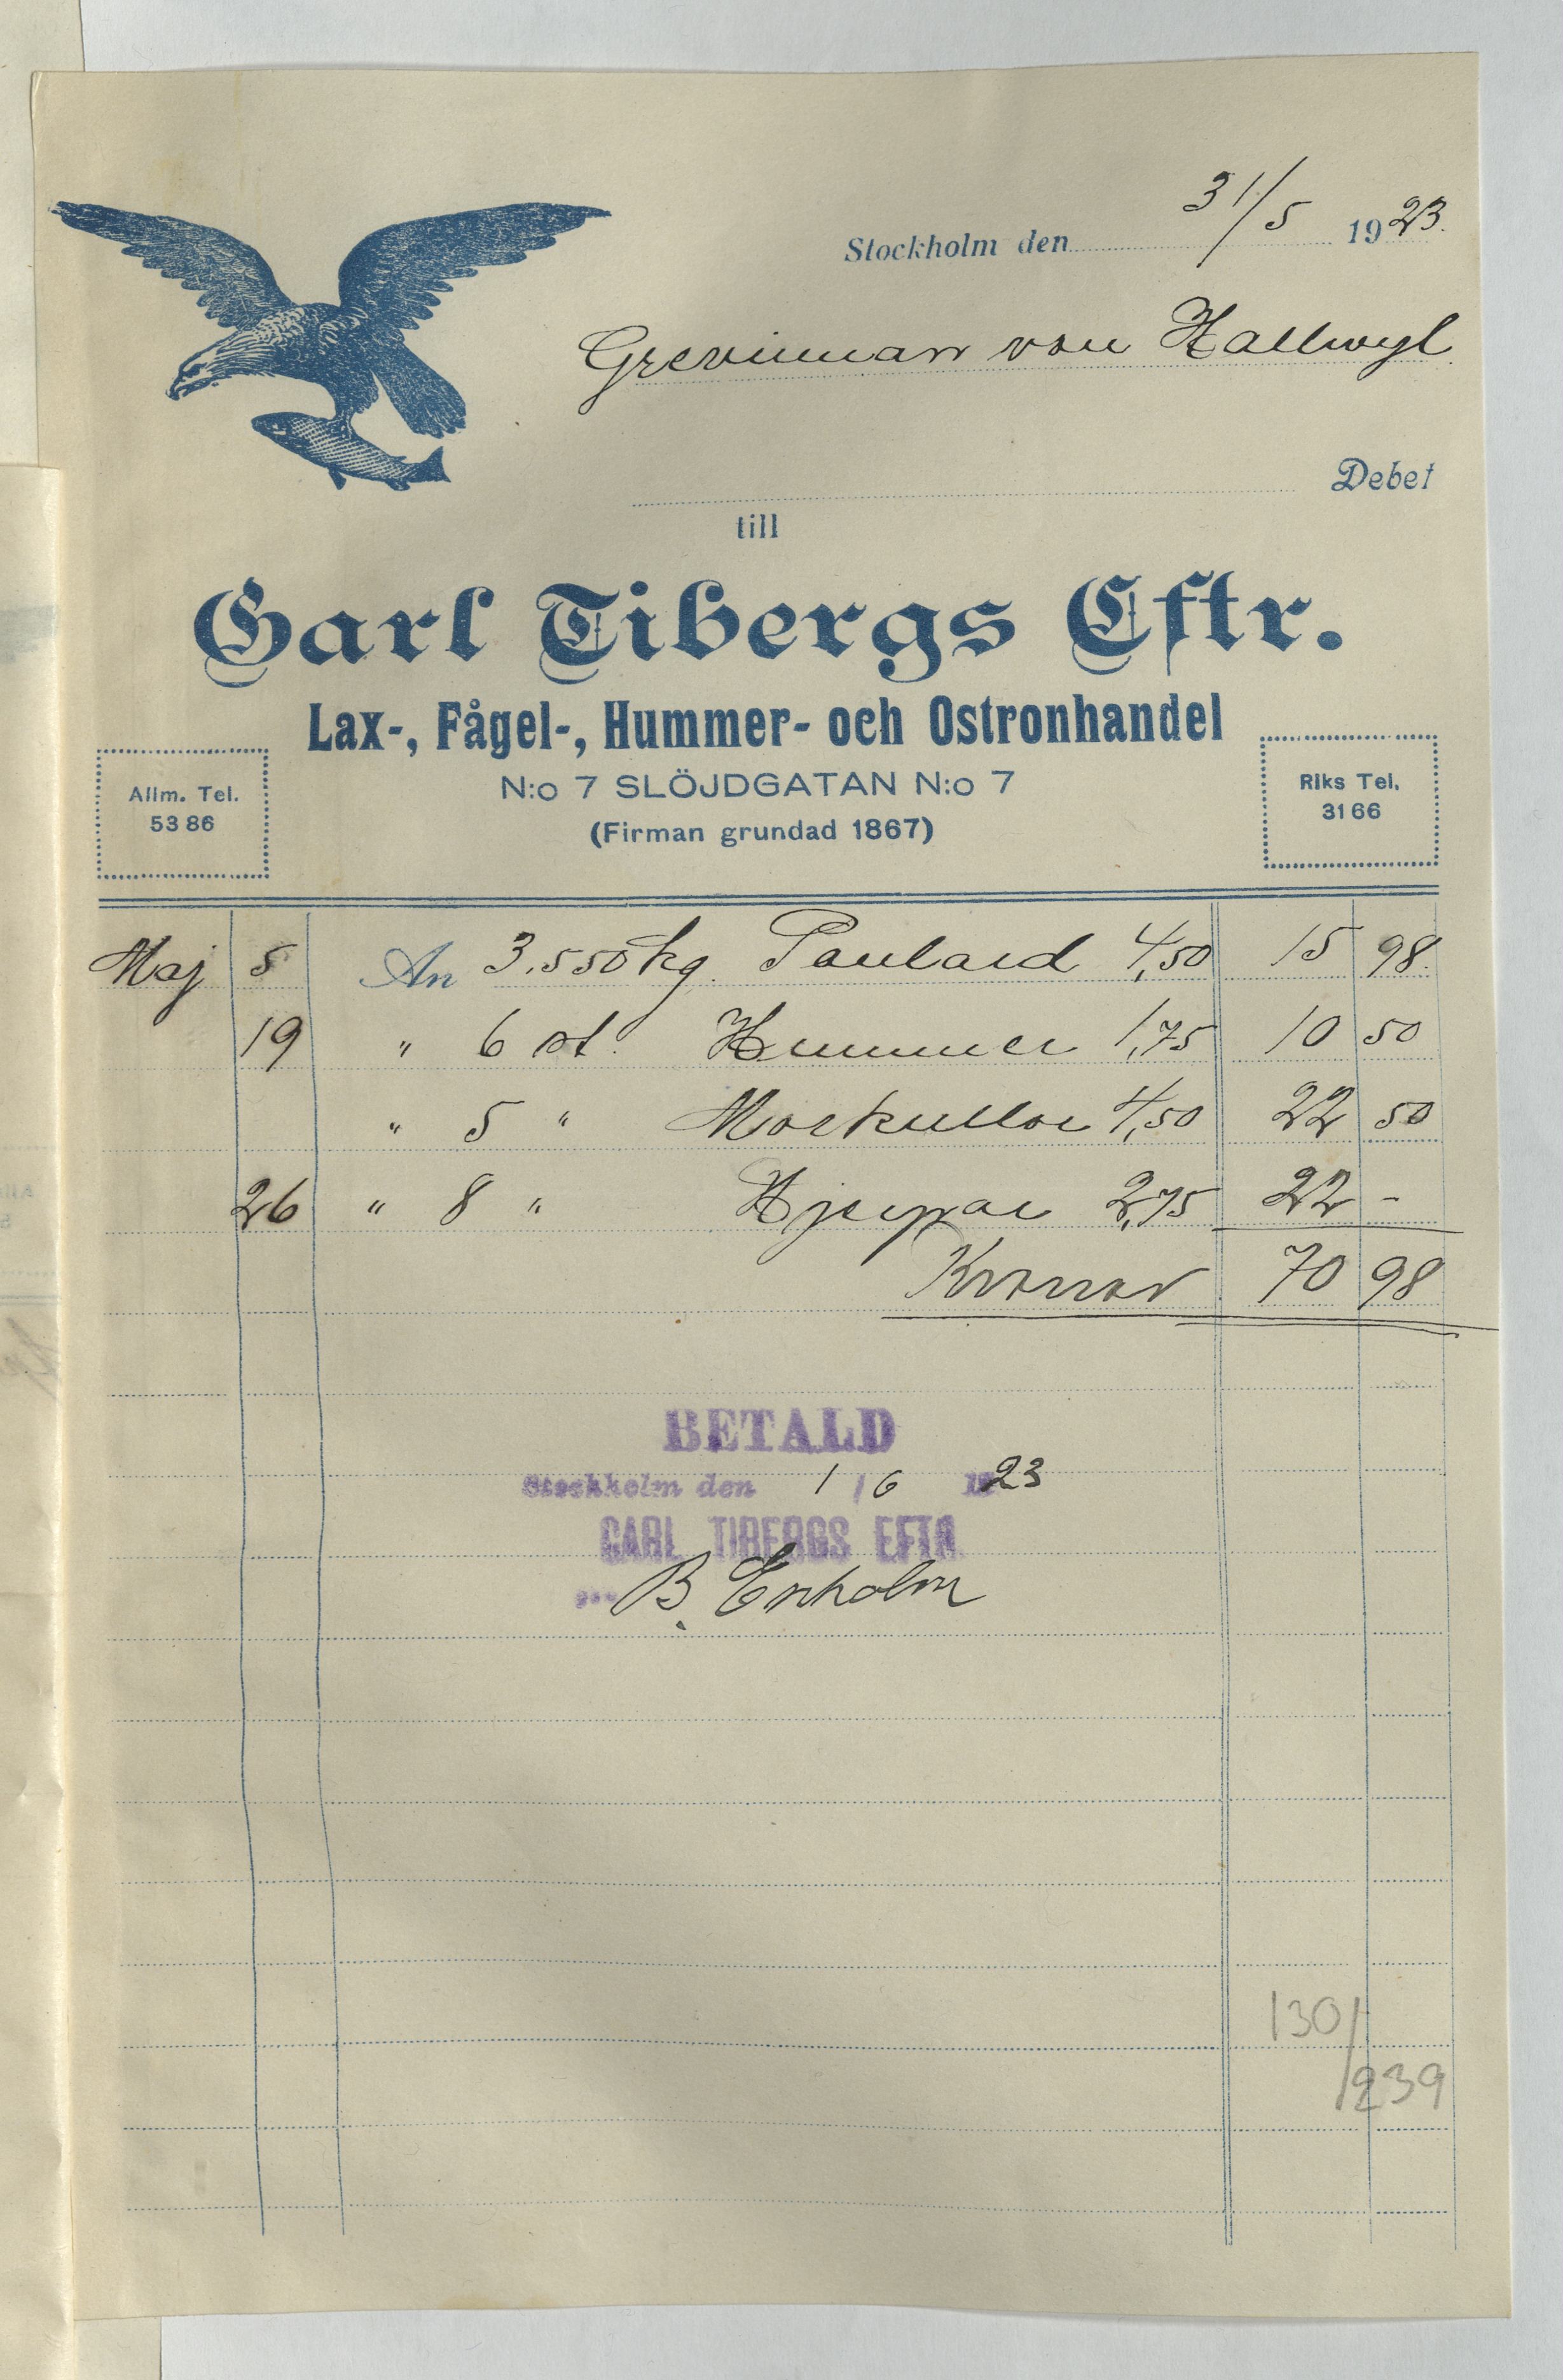 Stockholm den 31/5 1923.
Grevinnan von Hallwyl
Debet
till
Carl Tibergs Eftr.
Lax-, Fågel-, Hummer- och Ostronhandel
N:o 7 SLÖJDGATAN N:o 7
(Firman grundad 1867)
Allm. Tel.
53 86
Riks Tel.
31 66
Maj 5 An 3,550 kg. Poulard 4,50 15 98.
19 " 6 st. Hummer 1,75 10 50
" 5 " Morkullor 4,50 22 50
26 " 8 " Hjerpar 2,75 22 -
Kronor 70 98
BETALD
Stockholm den 1/6 1923
CARL TIBERGS EFTR.
B. Enholm
130/
239